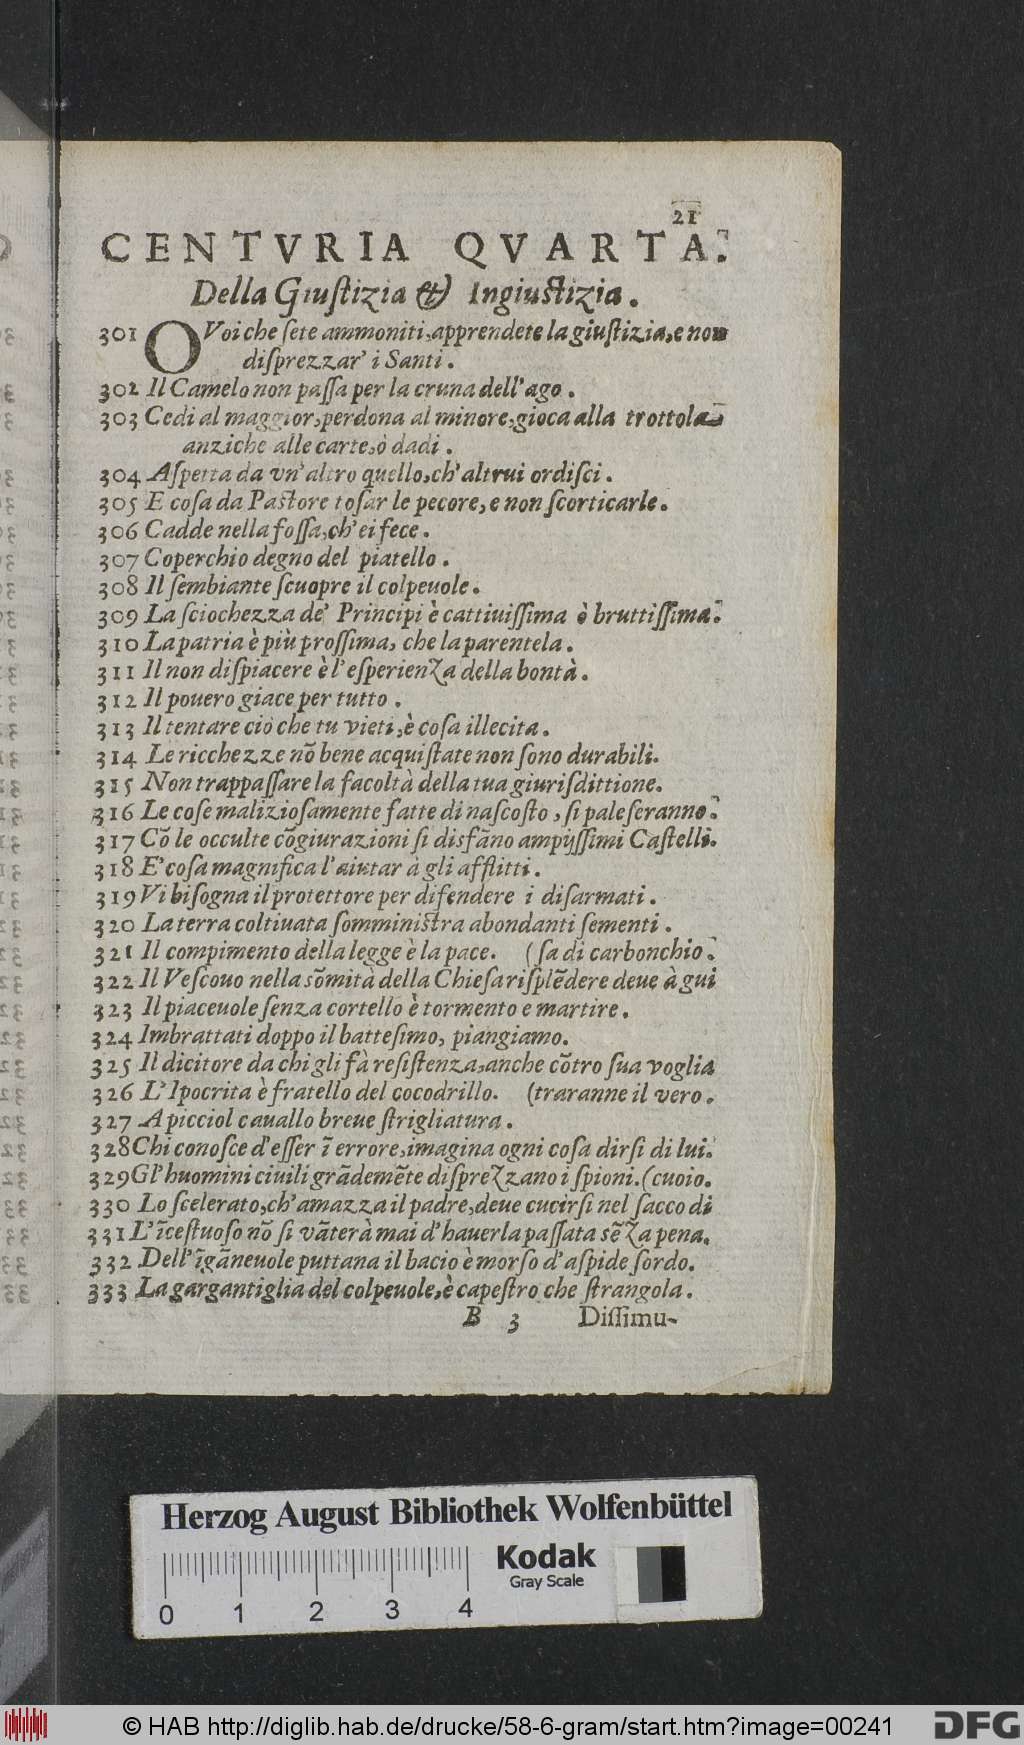 21
CENTVRIA QVARTA.
Della Giuſtizia & Ingiuſtizia.
301 O Voi che ſete ammoniti, apprendete la giuſtizia, e non
diſprezzar' i Santi.
302 Il Camelo non paſſa per la cruna dell'ago.
303 Cedi al maggior, perdona al minore, gioca alla trottola
anziche alle carte, ò dadi.
304 Aſpetta da vn'altro quello, ch'altrui ordiſci.
305 E coſa da Paſtore toſar le pecore, e non ſcorticarle.
306 Cadde nella foſſa, ch'ei fece.
307 Coperchio degno del piatello.
308 Il ſembiante ſcuopre il colpeuole.
309 La ſciochezza de' Principi è cattiuiſſima è bruttiſſima.
310 La patria è più proſſima, che la parentela.
311 Il non diſpiacere è l'eſperienza della bontà.
312 Il pouero giace per tutto.
313 Il tentare ciò che tu vieti, è coſa illecita.
314 Le ricchezze nō bene acquiſtate non ſono durabili.
315 Non trappaſſare la facoltà della tua giuriſdittione.
316 Le coſe malizioſamente fatte di naſcoſto, ſi paleſeranno.
317 Cō le occulte cōgiurazioni ſi disfāno ampijſſimi Caſtelli.
318 E' coſa magnifica l'aiutar à gli afflitti.
319 Vi biſogna il protettore per difendere i diſarmati.
320 La terra coltiuata ſomminiſtra abondanti ſementi.
321 Il compimento della legge è la pace. (ſa di carbonchio.
322 Il Veſcouo nella ſōmità della Chieſa riſplēdere deue à gui
323 Il piaceuole ſenza cortello è tormento e martire.
324 Imbrattati doppo il batteſimo, piangiamo.
325 Il dicitore da chi gli fà reſiſtenza, anche cōtro ſua voglia
326 L'Ipocrita è fratello del cocodrillo. (traranne il vero.
327 A picciol cauallo breue ſtrigliatura.
328 Chi conoſce d'eſſer ī errore, imagina ogni coſa dirſi di lui.
329 Gl'huomini ciuili grādemēte diſprezzano i ſpioni. (cuoio.
330 Lo ſcelerato, ch'amazza il padre, deue cucirſi nel ſacco di
331 L'īceſtuoſo nō ſi vāterà mai d'hauer la paſſata sēza pena.
332 Dell'īgāneuole puttana il bacio è morſo d'aſpide ſordo.
333 La gargantiglia del colpeuole, è capeſtro che ſtrangola.
B 3 Diſſimu-
Herzog August Bibliothek Wolfenbüttel
Kodak
Gray Scale
0 1 2 3 4
© HAB http://diglib.hab.de/drucke/58-6-gram/start.htm?image=00241
DFG